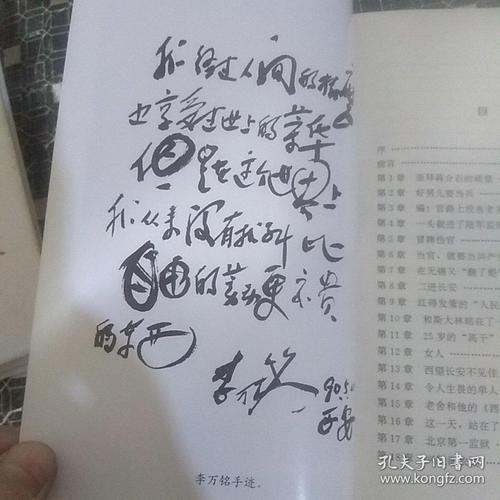 我经过人间的
也享受过世上的荣华
但是在这个世界上
我从来没有找到比
自由的
更宝贵
的东西
李万铭
90.5.
西安
李万铭手迹。
目
序
前言
第1章 崇拜蒋介石的顽童
第2章 好男儿要当兵
第3章 骗!官路上没当老实
第4章 一头就进了陆军监
第5章 冒牌伤官
第6章 当官,就要当共产党
第7章 在无锡又“翻了船
第8章 二进长安
第9章 红得发紫的“人民
第10章 和斯大林站在了一
第11章 25岁的“高干”
第12章 女人
第13章 西望长安不见佳
第14章 令人生畏的单人
第15章 老舍和他的《西
第16章 这一天,站在了
第17章 北京第一监狱
孔夫子旧书网
www.kongfz.com